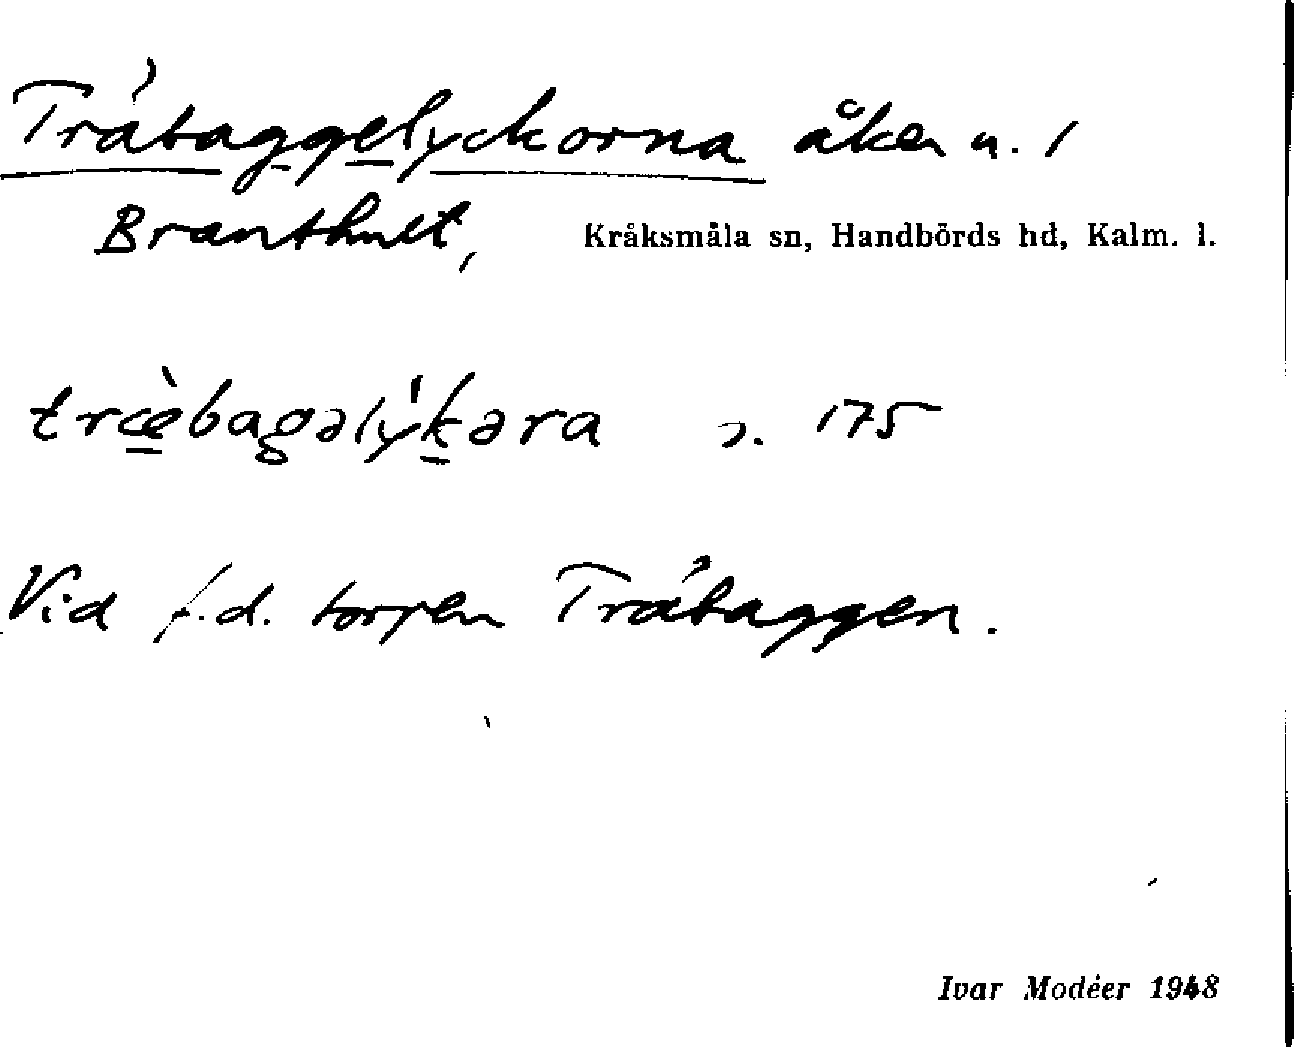 Träbaggelyckorna åker n. 1
Branthult, Kråksmåla sn, Handbörds hd, Kalm. l.
træ̀bagəlýkəra s. 175
Vid f.d. torpen Träbaggen.
Ivar Modéer 1948